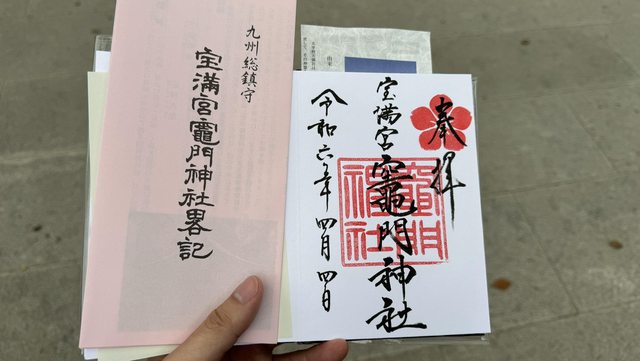 九州総鎮守
宝満宮竈門神社畧記
奉拝
宝満宮
竈門神社
令和六年四月四日
竈門
神社